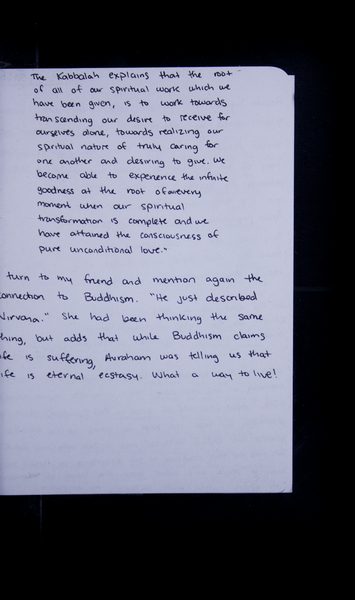 The Kabbalah explains that the root
of all of our spiritual work which we
have been given, is to work towards
transcending our desire to receive for
ourselves alone, towards realizing our
spritual nature of truly caring for
one another and desiring to give. We
become able to experience the infinite
goodness at the root of our every
moment when our spiritual
transformation is complete and we
have attained the consciousness of
pure unconditional love."
turn to my friend and mention again the
connection to Buddhism. "He just described
Nirvana." She had been thinking the same
thing, but adds that while Buddhism claims
ife is suffering, Avraham was telling us that
ife is eternal ecstasy. What a way to live!